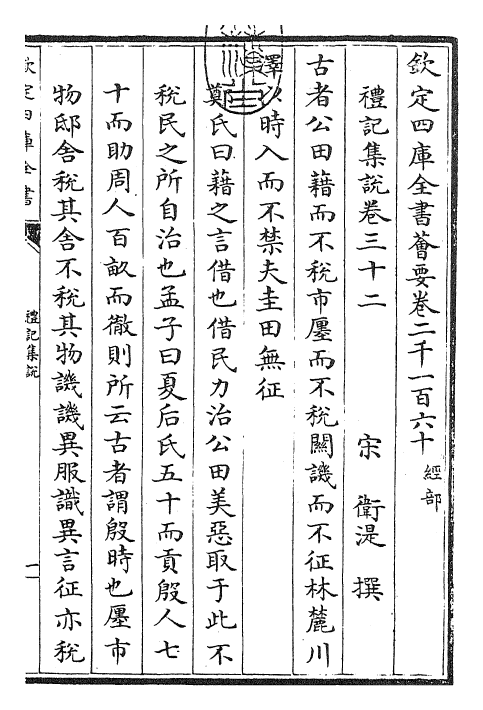 欽定四庫全書薈要卷二千一百六十 經部
禮記集說卷三十二 宋 衛湜 撰
古者公田藉而不稅市廛而不稅關譏而不征林麓川
澤以時入而不禁夫圭田無征
鄭氏曰藉之言借也借民力治公田美惡取于此不
稅民之所自治也孟子曰夏后氏五十而貢殷人七
十而助周人百畝而徹則所云古者謂殷時也廛市
物邸舍稅其舍不稅其物譏譏異服識異言征亦稅
欽定四庫全書
禮記集說
一